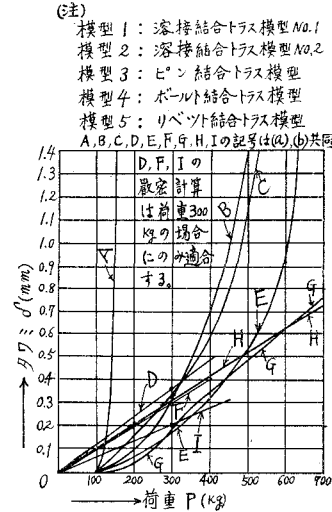 (注)
模型1：溶接結合トラス模型No.1
模型2：溶接結合トラス模型No.2
模型3：ピン結合トラス模型
模型4：ボールト結合トラス模型
模型5：リベット結合トラス模型
A,B,C,D,E,F,G,H,Iの記号は(a),(b)共同
D, F, Iの
厳密計算
は荷重300
kgの場合
にのみ適合
する。
A
B
C
D
E
F
G
H
G
H
G
E
I
G
1.4
1.3
1.2
1.1
1.0
0.9
0.8
0.7
0.6
0.5
0.4
0.3
0.2
0.1
0
タワミδ(mm)
0 100 200 300 400 500 600 700
荷重P(kg)